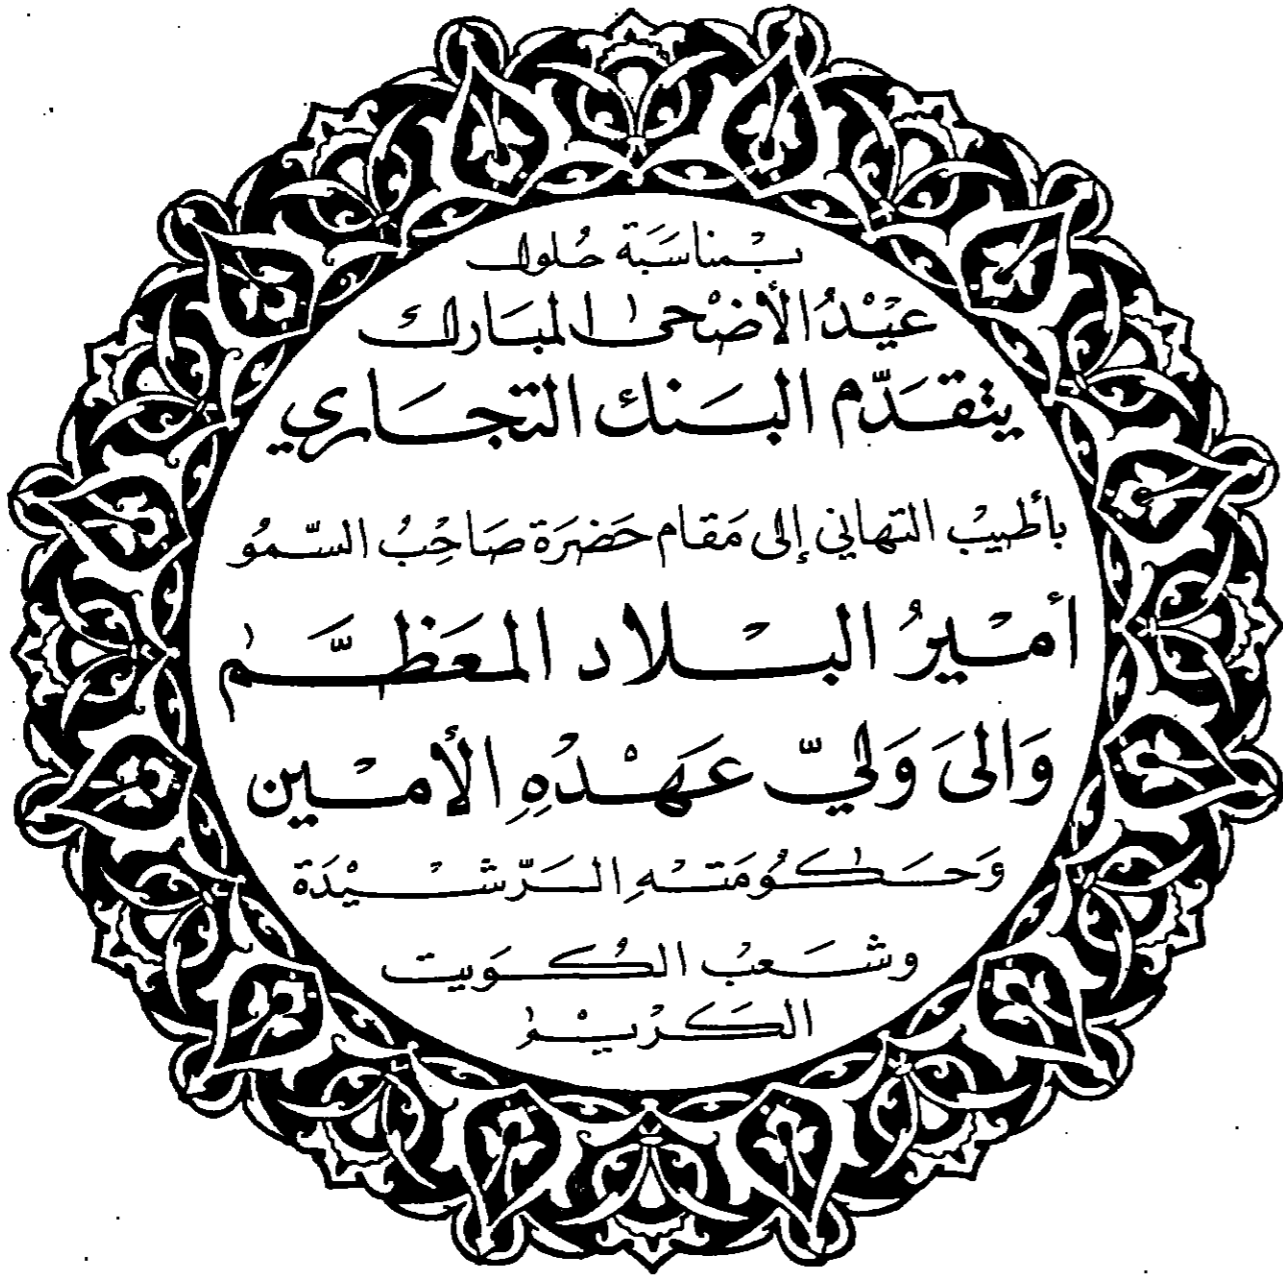 بمناسبة حلول
عيد الأضحى المبارك
يتقدّم البنك التجاري
بأطيب التهاني إلى مقام حضرة صاحب السّمو
أمير البلاد المعظّم
وَالىَ وَليّ عهده الأمين
وَحكومته الرّشيدة
وشعب الكويت
الكريم